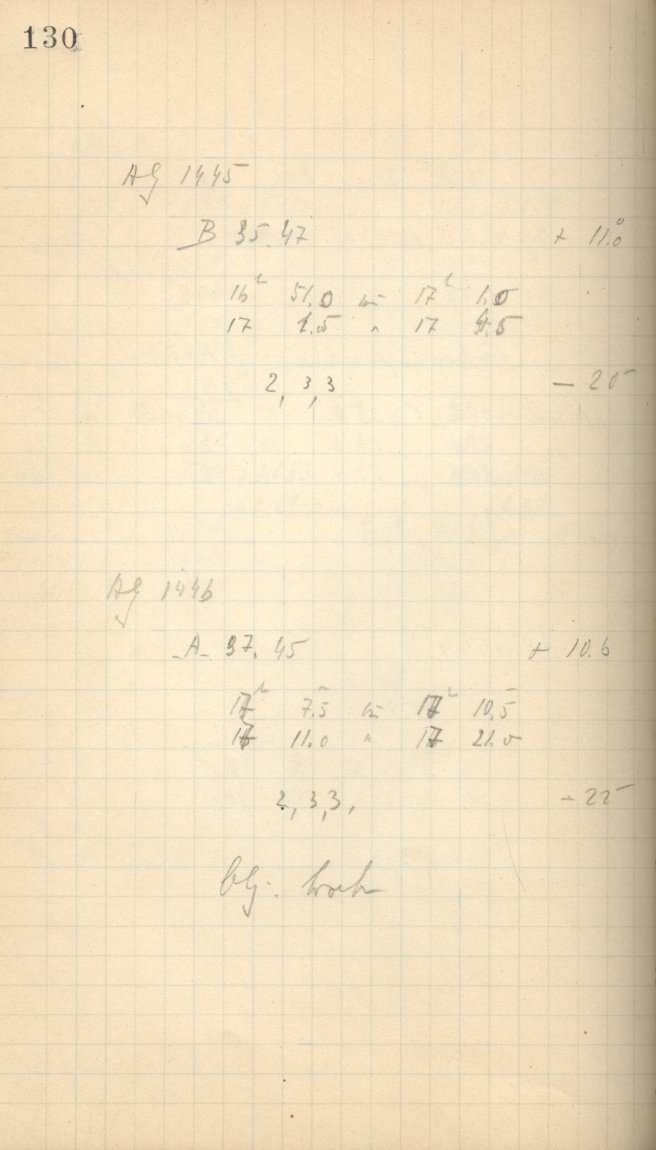 130
AG 1445
B 35.47 + 11.0°
16h 51.0 bis 17h 1.0
17 1.5 " 17 4.5
2, 3, 3 – 25
AG 1446
A 37.45 + 10.6
17h 7.5 bis 17h 10.5
17 11.0 " 17 21.0
2, 3, 3, – 225
Obj.